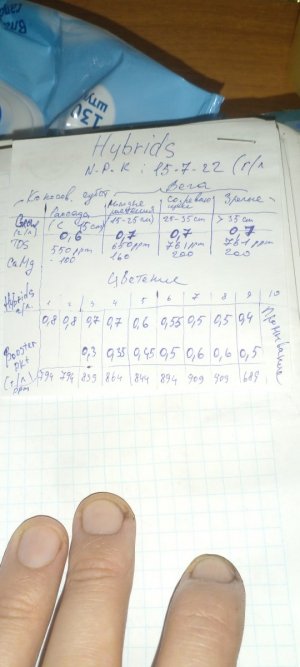 130
штук
Hybrids
N-P-K : 15-7-22 (г/л
Кокосов. субст Вега
Рассада
(< 15 cm) 15-25 cm 25-35 cm > 35 cm
(г/л) 0,6 0,7 0,7 0,7
TDS 550 ppm 650 ppm 761 ppm 761 ppm
CaMg 100 160 200 200
Цветение
Hybrids 1 2 3 4 5 6 7 8 9 10
0,8 0,8 0,7 0,7 0,6 0,55 0,5 0,5 0,4 Промывание
Booster
PK+ 0,3 0,35 0,45 0,5 0,6 0,6 0,5
(г/л)
ppm 794 794 859 864 844 894 909 909 689